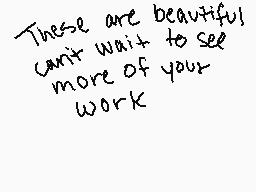 These are beautiful
can't wait to see
more of your
work